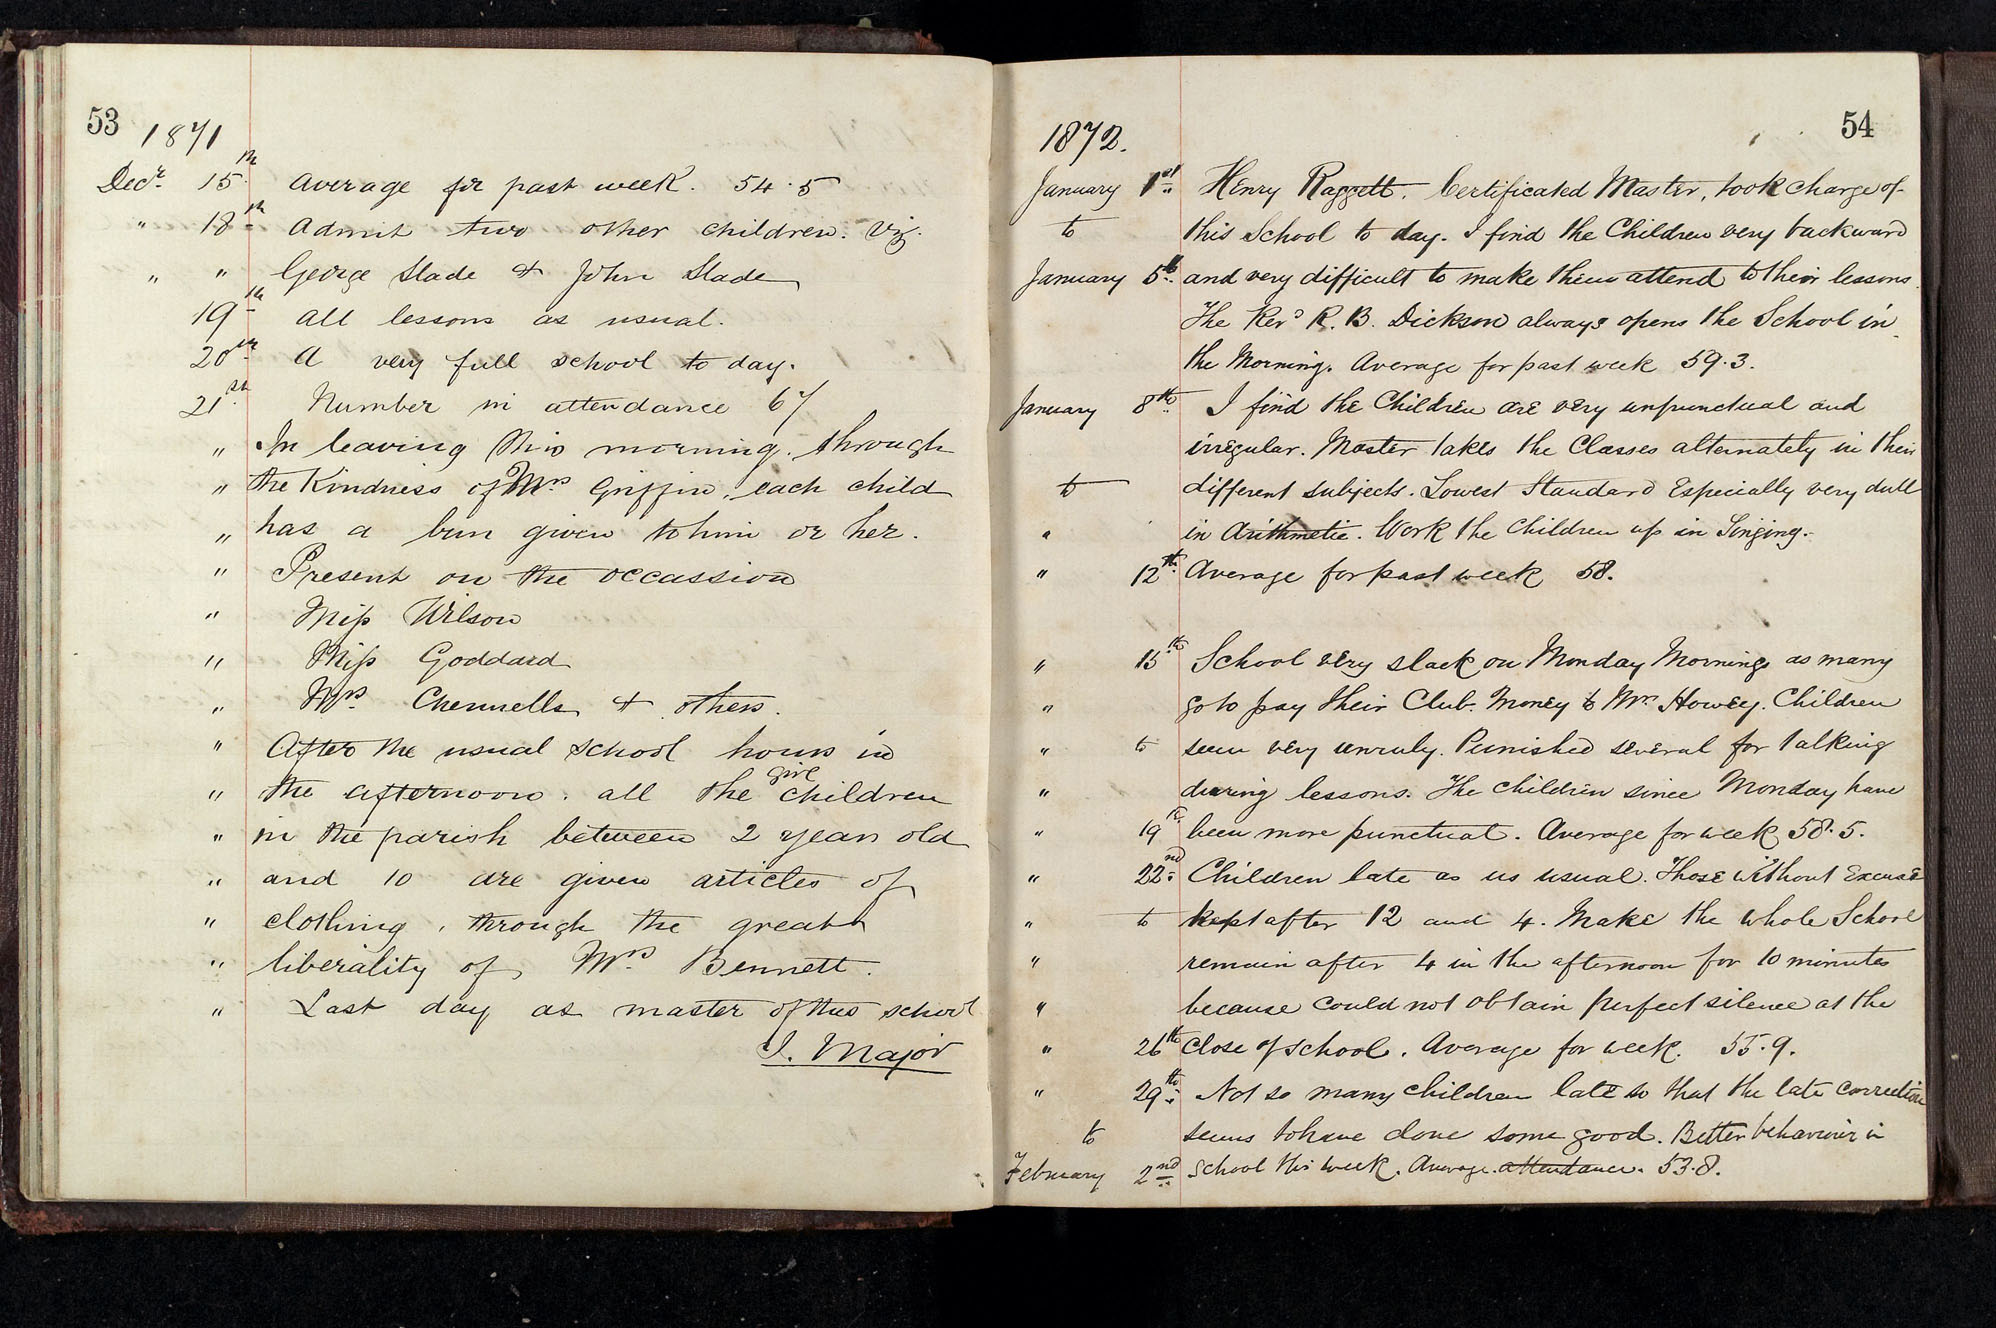 53
1871
Decr. 15th Average for past week. 54.5
" 18th Admit two other children. Viz.
" " George Slade & John Slade
19th All lessons as usual.
20th A very full school to day.
21st Number in attendance 67
" In leaving this morning. through
" the Kindness of Mrs Griffin, each child
" has a bun given to him or her.
" Present on the occassion
" Miss Wilson
" Miss Goddard
" Mrs. Chennells & others.
" After the usual school hours in
" the afternoon. all the girl children
" in the parish between 2 years old
" and 10 are given articles of
" clothing, through the great
" liberality of Mrs. Bennett.
" Last day as master of this school
J. Major
54
1872.
January 1st Henry Raggett. Certificated Master, took charge of
to this School to day. I find the Children very backward
January 5th and very difficult to make them attend to their lessons.
The Revd R. B. Dickson always opens the School in
the Morning. Average for past week 59.3.
January 8th I find the Children are very unpunctual and
irregular. Master takes the Classes alternately in their
to different subjects. Lowest Standard Especially very dull
" in Arithmetic. Work the Children up in Singing.
" 12th Average for past week 58.
" 15th School very slack on Monday Mornings as many
" go to pay their Club. Money to Mrs Howey. Children
" to seem very unruly. Punished several for talking
" during lessons. The children since Monday have
" 19th been more punctual. Average for week 58.5.
" 22nd Children late as us usual. Those without Excuse
" to kept after 12 and 4. Make the whole School
" remain after 4 in the afternoon for 10 minutes
" because could not obtain perfect silence at the
" 26th close of school. Average for week. 55.9.
" 29th Not so many children late so that the late correction
to seems to have done some good. Better behaviour in
February 2nd school this week. Average attendance. 53.8.